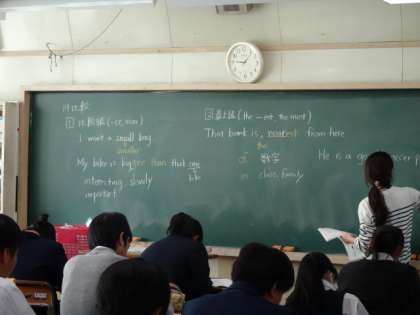 比較
1 比較級 (-er, more)
I want a small bag
smaller
My bike is bigger than that one
bike
interesting slowly
important
2 最上級 (the -est, the most)
That bank is nearest from here
the
of 数字
in class, family
He is a good soccer p